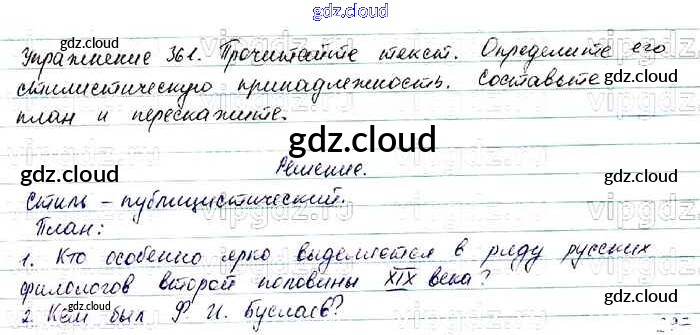 gdz.cloud
Упражнение 361. Прочитайте текст. Определите его
стилистическую принадлежность. Составьте
план и перескажите.
Решение.
Стиль – публицистический.
План:
1. Кто особенно ярко выделяется в ряду русских
филологов второй половины XIX века?
2. Кем был Ф. И. Буслаев?
gdz.cloud
gdz.cloud
gdz.cloud
gdz.cloud
gdz.cloud
gdz.cloud
gdz.cloud
gdz.cloud